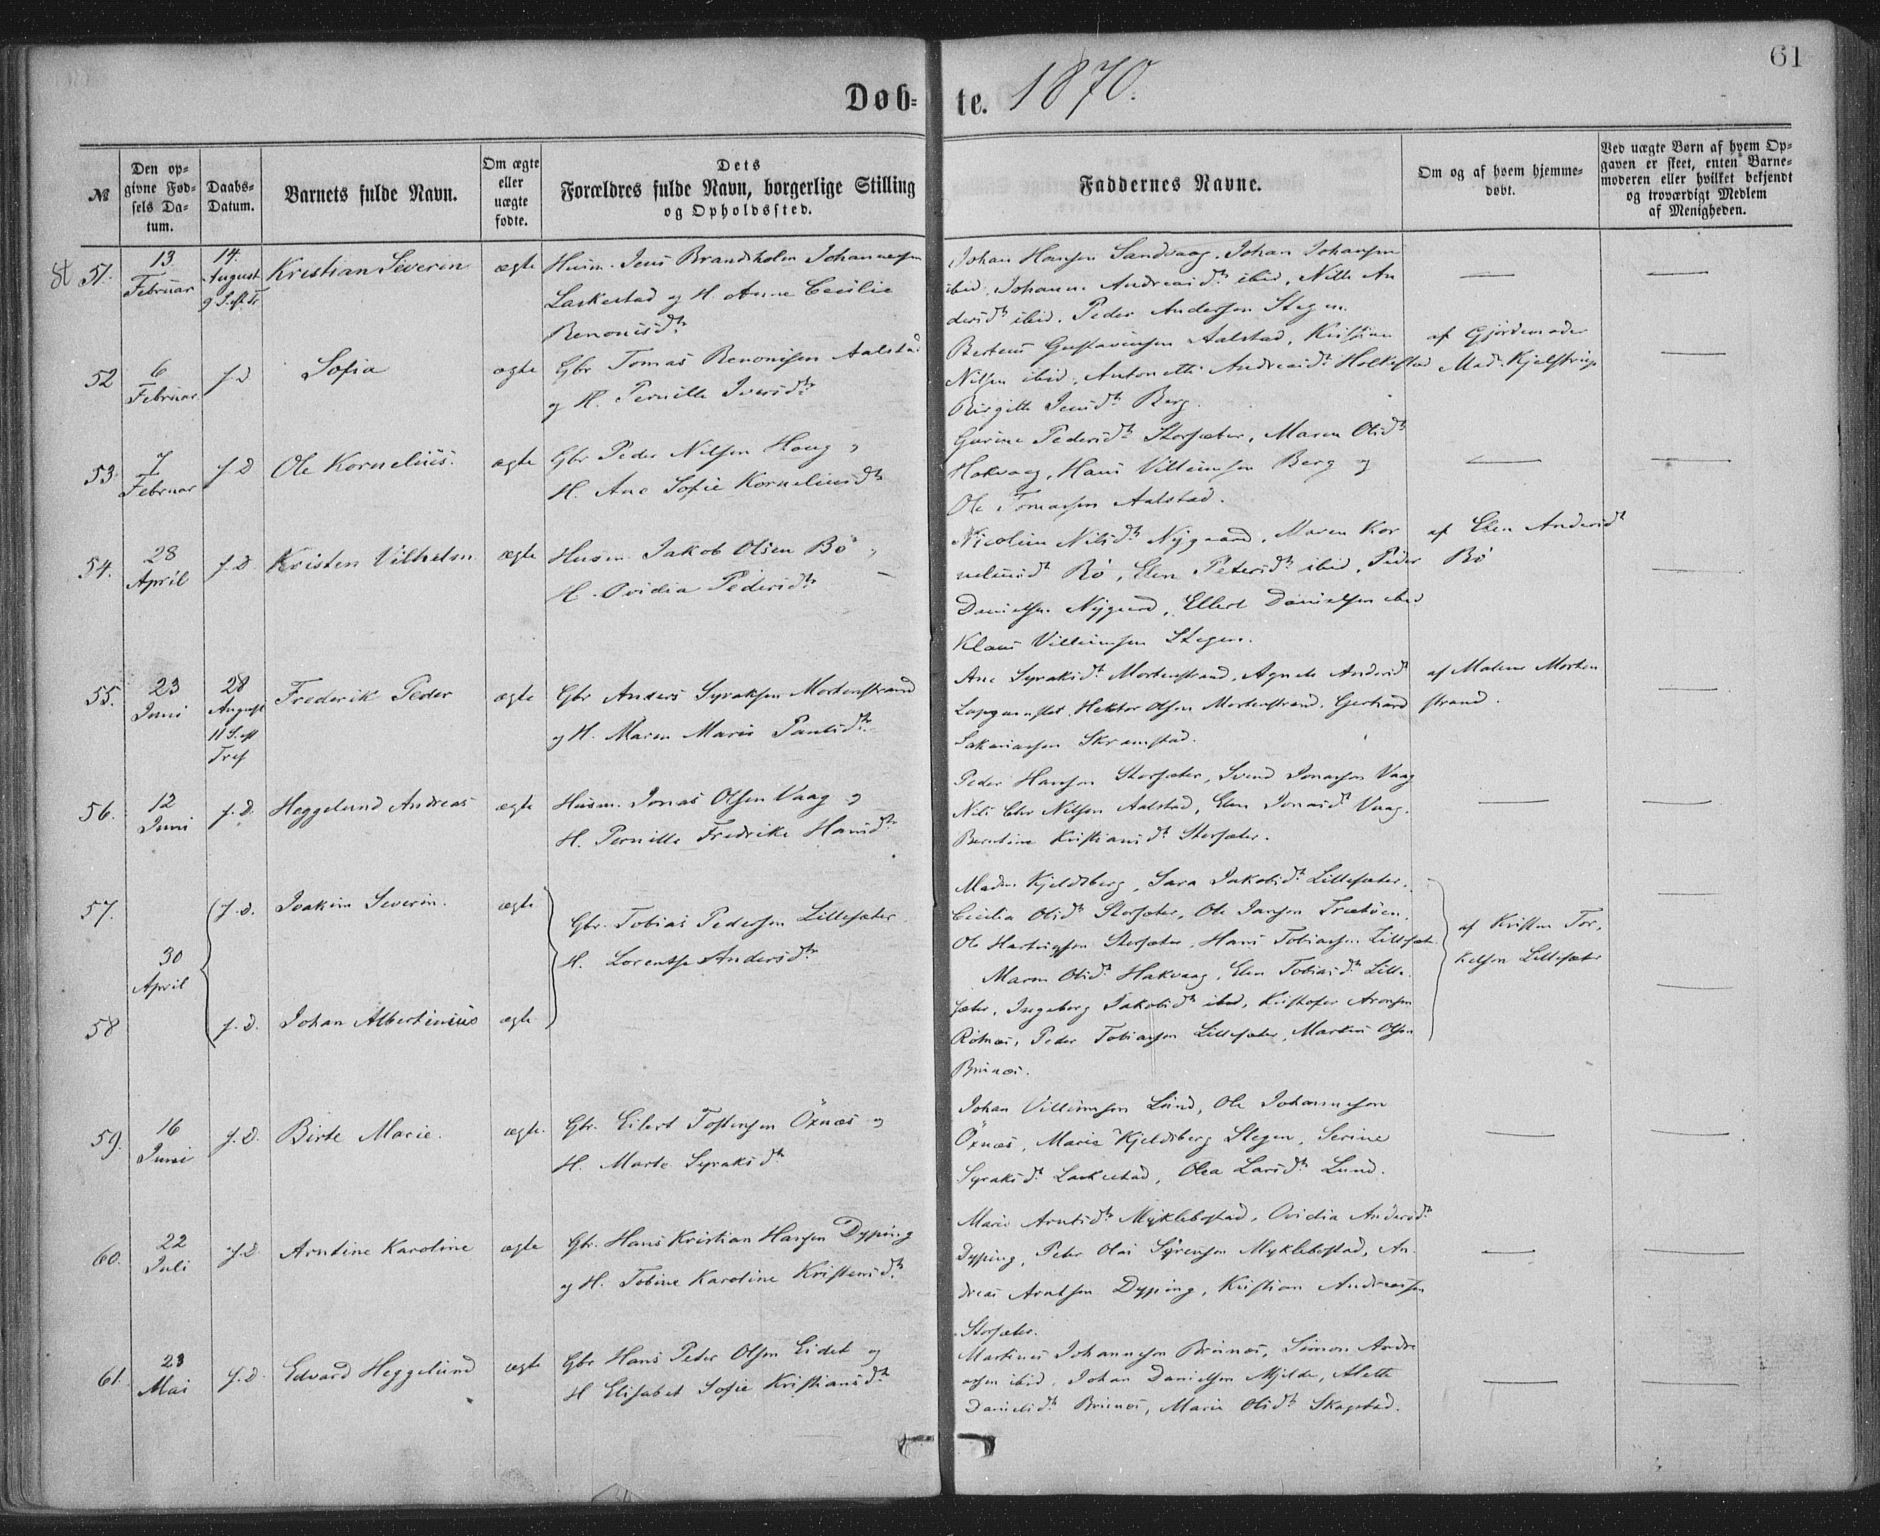 61
Døb- te. 1870.
№
Den op-
givne Fød-
sels Da-
tum.
Daabs-
Datum.
Barnets fulde Navn.
Om ægte
eller
uægte
fødte.
Dets
Forældres fulde Navn, borgerlige Stilling
og Opholdssted.
Faddernes Navne.
Om og af hvem hjemme-
døbt.
Ved uægte Børn af hvem Op-
gaven er skeet, enten Barne-
moderen eller hvilket bekjendt
og troværdigt Medlem
af Menigheden.
St 51.
13
Februar
14.
August
9 S. eft. Tr
Kristian Severin
ægte
Husm. Jens Brandtholm Johannesen
Laskestad og H. Anne Cecilie
Renonisdtr
Johan Hansen Sandvaag, Johan Johansen
ibid, Johanne Andreasdtr ibid, Nille An
dersdtr ibid. Peder Andersen Stegen.
52
6
Februar
s. D
Sofia
ægte
Gbr Tomas Renonisen Aalstad
og H. Pernille Iversdtr
Berteus Gustavussen Aalstad, Kristine
Nilsen ibid, Antonette Andreasdtr Holkestad
Birgitte Jensdtr Berg.
af Gjordemoder
Mad. Kjelstrup
53.
7
Februar
s. D
Ole Kornelius.
ægte
Gbr Peder Nilsen Haug og
H. Ane Sofie Korneliusdtr
Gurine Pedersdtr Storsæter, Maren Olsdtr
Hakvaag, Hans Villumsen Berg og
Ole Tomassen Aalstad.
54.
28
April
s. D.
Kristen Vilhelm
ægte
Husm. Jakob Olsen Bö og
H. Ovidia Pedersdtr
Nicoline Nilsdtr Nygaard, Maren Kor
neliusdtr Bö, Elen Petersdtr ibid, Peder
Danielsen Nygaard, Ellert Danielsen ibid
Klaus Villumsen Stegen.
af Elen Andersdtr
Bö
55.
23
Juni
28
August
11 S. eft
Tref
Frederik Peder
ægte
Gbr Anders Syraksen Mortenstrand
og H. Maren Marie Paulsdtr
Ane Syraksdtr Mortenstrand, Agnete Andersdtr
Hektor Olsen Mortenstrand, Gerhard
Sakariassen Skramstad.
af Malene Morten
strand.
56.
12
Juni
s. D.
Heggelund Andreas
ægte
Husm. Jonas Olsen Vaag og
H. Pernille Fredrike Hansdtr
Peder Hansen Storsæter, Svend Jonassen Vaag
Nils Chr Nilsen Aalstad, Elen Jonasdtr Vaag.
Berntine Kristiansdtr Storsæter.
57.
s. D.
Joakim Severin.
ægte
30
April
Gbr. Tobias Pedersen Lillesæter
H. Lorentse Andersdtr
58
s. D.
Johan Albertinius
ægte
Madm. Kjeldsberg, Sara Jakobsdtr Lillesæter,
Cecilia Olsdtr Storsæter, Ole Jansen
Ole Hartvigsen Storsæter, Hans Tobiassen Lillesæt.
Maren Olsdtr Hakvaag, Elen Tobiasdtr Lille
sæter, Ingeborg Jakobsdtr ibid, Kristofer Aronsen
Rötnæs, Peder Tobiassen Lillesæter, Markus Olsen
Brunæs.
af Kristen Tor-
kelsen Lillesæter
59.
16
Juni
s. D.
Birte Marie.
ægte.
Gbr. Eilert Tostensen Öxnæs og
H. Marte Syraksdtr
Johan Villumsen Lund, Ole Johannesen
Öxnæs, Marie Kjeldsberg Stegen, Serine
Syraksdtr Laskestad, Olea Larsdtr Lund.
60.
22
Juli
s. D
Arntine Karoline
ægte
Gbr. Hans Kristian Hansen Dyping
og H. Tobine Karoline Kristensdtr
Marie Arntsdtr Myklebostad, Ovidia Andersdtr
Dyping, Peter Olai Sörensen Myklebostad, An-
dreas Arntsen Dyping, Kristian Andreassen
Storsæter.
61.
23
Mai
s. D
Edvard Heggelund
ægte
Gbr Hans Peter Olsen Eidet og
H Elisabet Sofie Kristiansdtr
Martinus Johannesen Brunæs, Simon Andre
assen ibid, Johan Danielsen Mjelde, Alette
Danielsdtr Brunæs, Marie Olsdtr Skagstad.